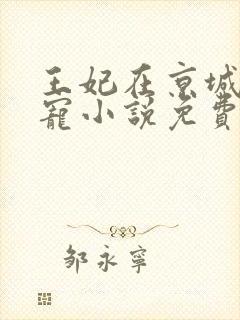 王妃在京城
寵小說免費
邹永寧